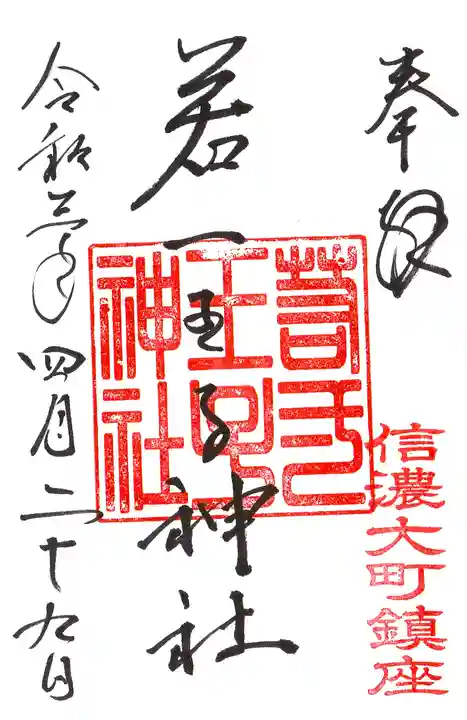 奉拝
信濃大町鎮座
若一王子神社
令和三年四月二十九日